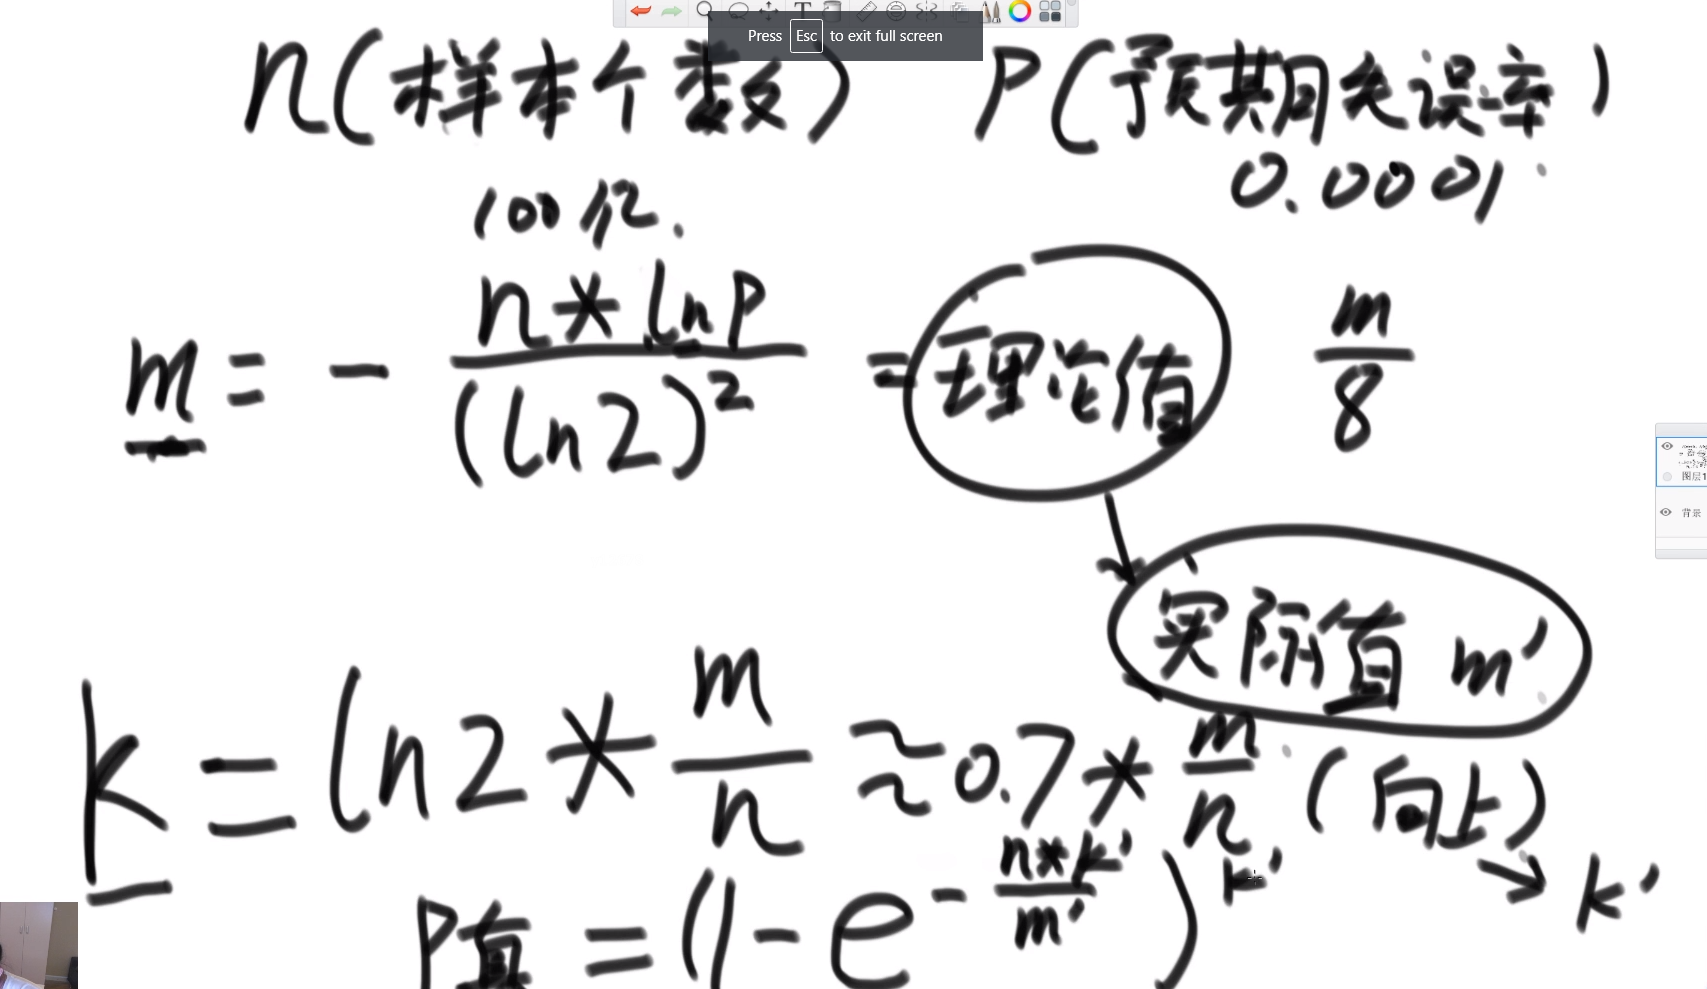 Press Esc to exit full screen
n(样本个数) P(预期失误率)
100亿. 0.0001
m = - n*lnP / (ln2)² = 理论值 m/8
实际值 m'
k = ln2 * m/n ≈ 0.7 * m/n (向上) → k'
P真 = (1-e^(-n*k'/m'))^k'
图层1
背景